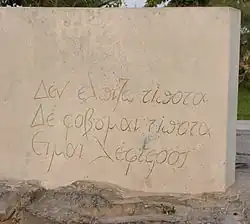 Δεν ελπίζω τίποτα
Δε φοβομαι τίποτα
Ειμαι λέφτερος